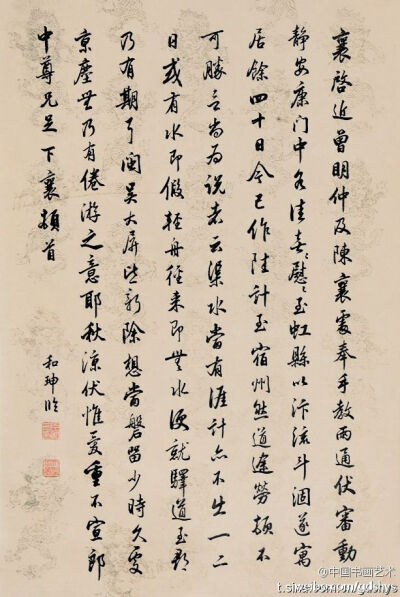 襄啓近曾明仲及陳襄處奉手教兩通伏審動
靜安康门中各佳喜〻慰〻至虹縣以汴流斗涸遂寓
居餘四十日今已作陸計至宿州然道途勞頓不
可勝言尚為說者云渠水當有涯計亦不出一二
日或有水即假輕舟徑来即無水便就驛道至都
乃有期耳閩吴大屏皆新除想當磐留少時久處
京塵無乃有倦游之意耶秋涼伏惟愛重不宣郎
中尊兄足下襄頓首
和珅臨
@中国书画艺术